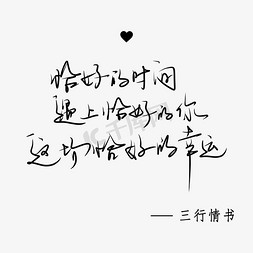 恰好的时间
遇上恰好的你
这场恰好的幸运
—— 三行情书